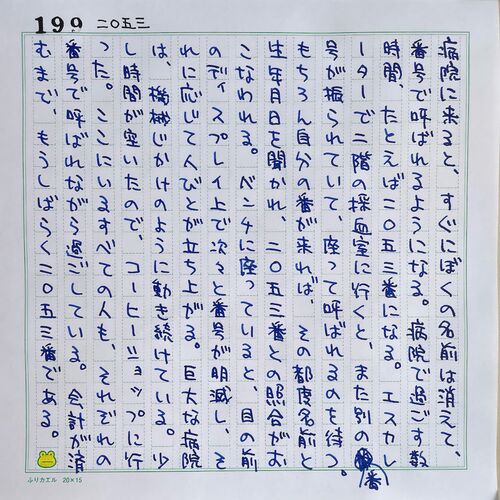 199 二〇五三
病院に来ると、すぐにぼくの名前は消えて、
番号で呼ばれるようになる。病院で過ごす数
時間、たとえば二〇五三番になる。エスカレ
ーターで二階の採血室に行くと、また別の番
号が振られていて、座って呼ばれるのを待つ。
もちろん自分の番が来れば、その都度名前と
生年月日を聞かれ、二〇五三番との照合がお
こなわれる。ベンチに座っていると、目の前
のディスプレイ上で次々と番号が明滅し、そ
れに応じて人びとが立ち上がる。巨大な病院
は、機械じかけのように動き続けている。少
し時間が空いたので、コーヒーショップに行
った。ここにいるすべての人も、それぞれの
番号で呼ばれながら過ごしている。会計が済
むまで、もうしばらく二〇五三番である。
ふりカエル 20×15